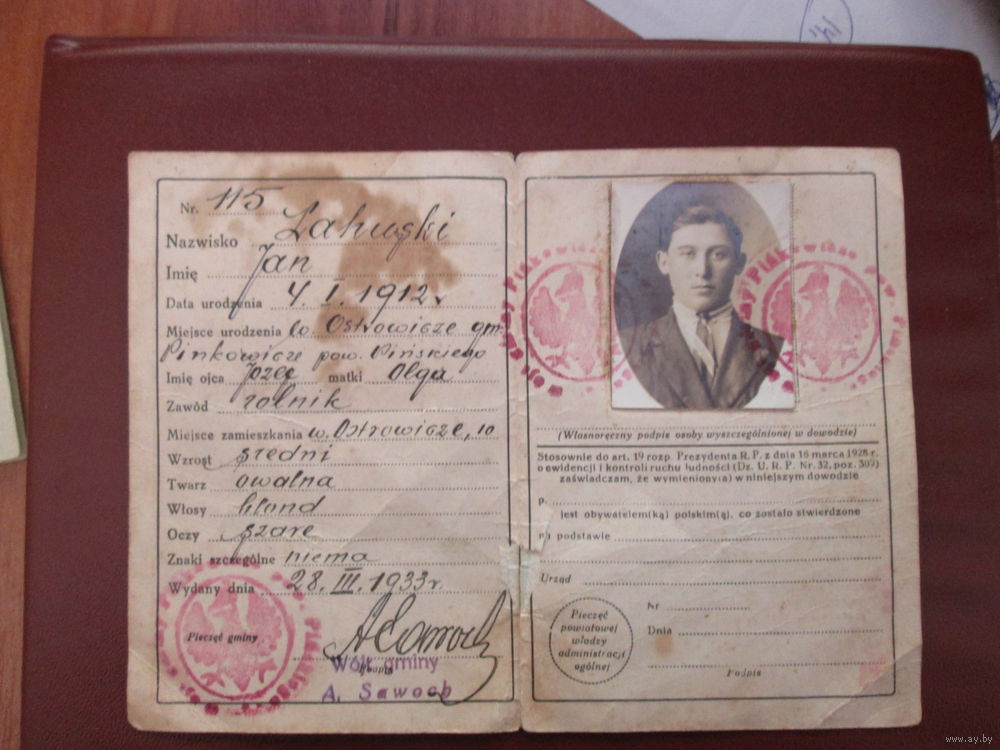 Nr. 115
Nazwisko
Imię Jan
Data urodzenia 4. I. 1912 r
Miejsce urodzenia w. Ostrowicze gm.
Pinkowicze pow. Pińskiego
Imię ojca Józef matki Olga
Zawód rolnik
Miejsce zamieszkania w. Ostrowicze, 10
Wzrost średni
Twarz owalna
Włosy blond
Oczy szare
Znaki szczególne niema
Wydany dnia 28. III. 1933 r.
Pieczęć gminy
Wójt gminy
A. Sawoch
(Własnoręczny podpis osoby wyszczególnionej w dowodzie)
Stosownie do art. 19 rozp. Prezydenta R. P. z dnia 16 marca 1928 r.
o ewidencji i kontroli ruchu ludności (Dz. U. R. P. Nr. 32, poz. 309)
zaświadczam, że wymieniony(a) w niniejszym dowodzie
p.
jest obywatelem(ką) polskim(ą), co zostało stwierdzone
na podstawie
Urząd
Pieczęć
powiatowej
władzy
administracji
ogólnej
Nr
Dnia
Podpis
www.ay.by